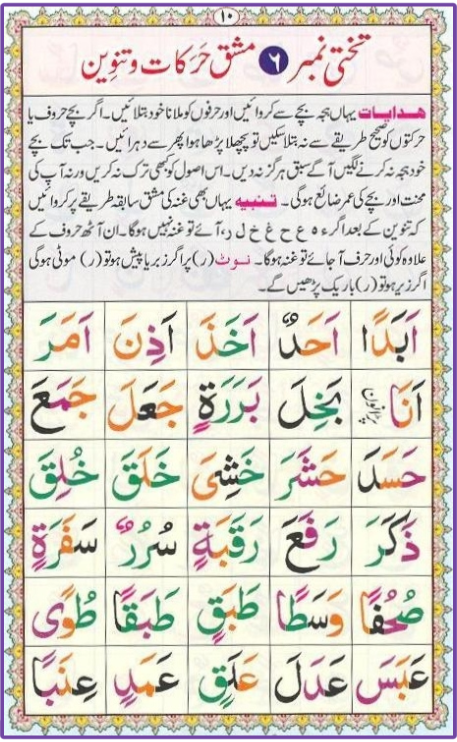 ۱۰
تختی نمبر ۶ مشق حَرَکات و تنوِین
ھدایات یہاں ہجّہ بچے سے کروائیں اور حرفوں کو ملانا خود بتلائیں۔ اگر بچے حروف یا
حرکتوں کو صحیح طریقے سے نہ بتلا سکیں تو پچھلا پڑھا ہوا پھر سے دہرائیں۔ جب تک بچے
خود ہجّہ نہ کرنے لگیں آگے سبق ہرگز نہ دیں۔ اس اصول کو بھی ترک نہ کریں ورنہ آپ کی
محنت اور بچے کی عمر ضائع ہوگی۔ تنبیہ یہاں بھی غنہ کی مشق سابقہ طریقے پر کروائیں
کہ تنوین کے بعد اگر ء ہ ع ح غ خ ل ر، آئے تو غنہ نہیں ہوگا۔ ان آٹھ حروف کے
علاوہ کوئی اور حرف آجائے تو غنہ ہوگا۔ نوٹ (ر) پر اگر زبر یا پیش ہو تو (ر) موٹی ہوگی
اگر زیر ہو تو (ر) باریک پڑھیں گے۔
اَبَدًا اَحَدٌ اَخَذَ اَذِنَ اَمَرَ
اَنَا بَخِلَ بَرَرَةٍ جَعَلَ جَمَعَ
حَسَدَ حَشَرَ خَشِیَ خَلَقَ خُلِقَ
ذَکَرَ رَفَعَ رَقَبَةٍ سُرُرٌ سَفَرَةٍ
صُحُفًا وَسَطًا طَبَقٍ طَبَقًا طُوًی
عَبَسَ عَدَلَ عَلَقٍ عَمَدٍ عِنَبًا